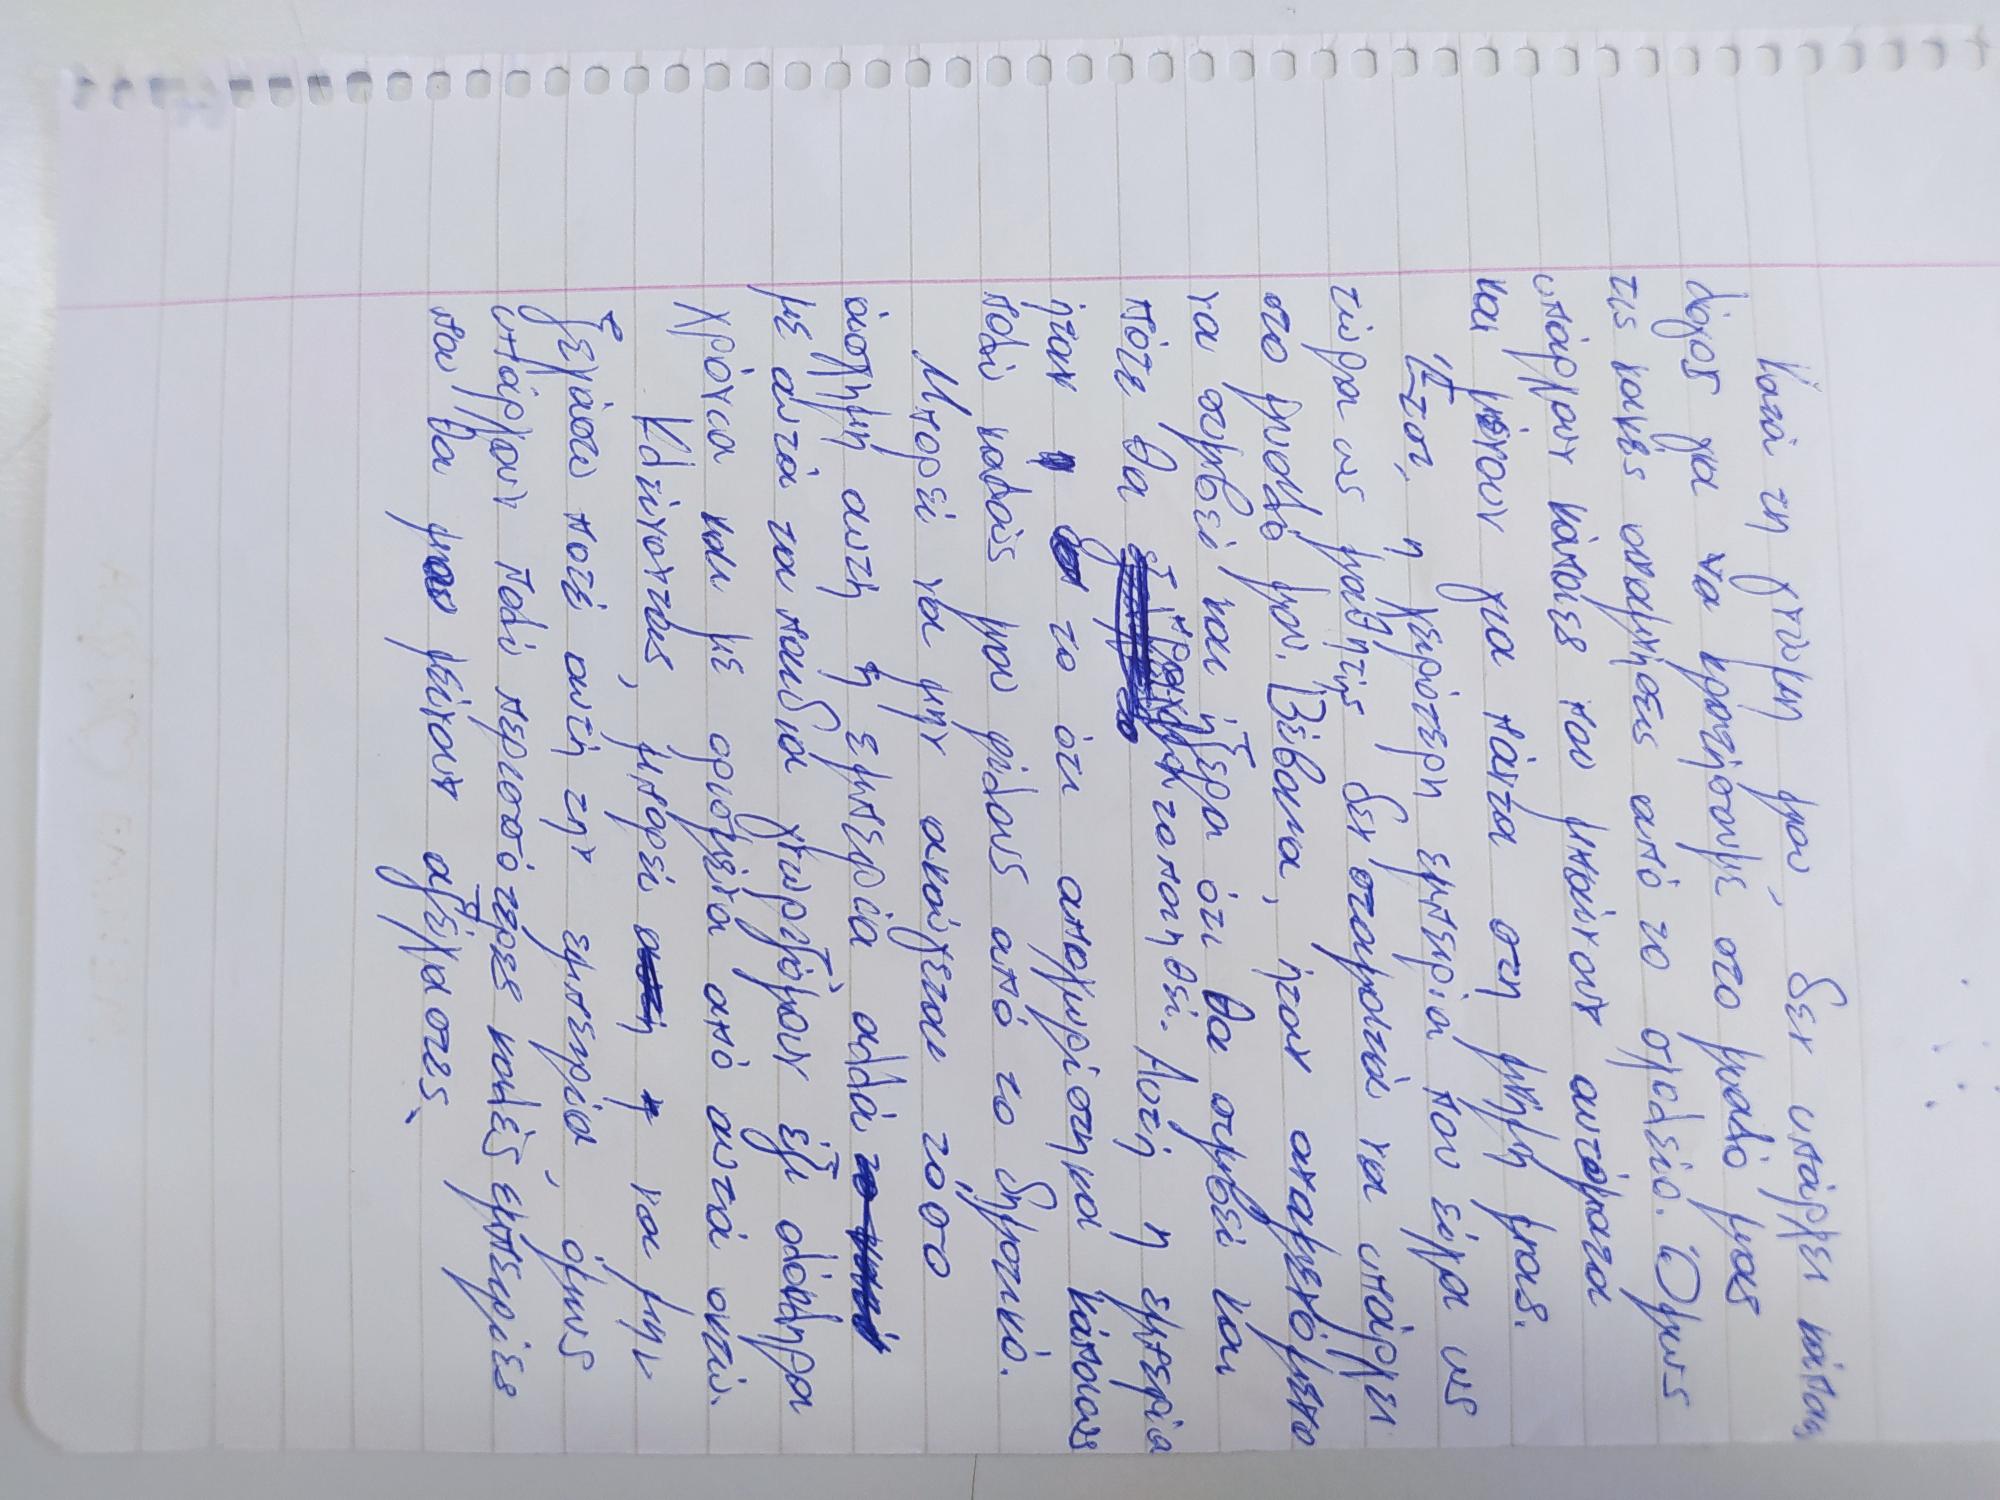 Κατά τη γνώμη μου, δεν υπάρχει κάποιος
λόγος για να κρατήσουμε στο μυαλό μας
τις κακές αναμνήσεις από το σχολείο. Όμως
υπάρχουν κάποιες που μπαίνουν αυτόματα
και μένουν για πάντα στη μνήμη μας.
Έτσι, η χειρότερη εμπειρία που είχα ως
τώρα ως μαθητής δεν σταματά να υπάρχει
στο μυαλό μου. Βέβαια, ήταν αναμενόμενο
να συμβεί και ήξερα ότι θα συμβεί και
πότε θα πραγματοποιηθεί. Αυτή η εμπειρία
ήταν το ότι αποχωρίστηκα κάποιους
πολύ καλούς μου φίλους από το δημοτικό.
Μπορεί να μην ακούγεται τόσο
άσχημη αυτή η εμπειρία αλλά
με αυτά τα παιδιά γνωριζόμουν έξι ολόκληρα
χρόνια και με ορισμένα από αυτά οκτώ.
Κλείνοντας, μπορεί να μην
ξεχάσω ποτέ αυτή την εμπειρία, όμως
υπάρχουν πολύ περισσότερες καλές εμπειρίες
που θα μου μείνουν αξέχαστες.